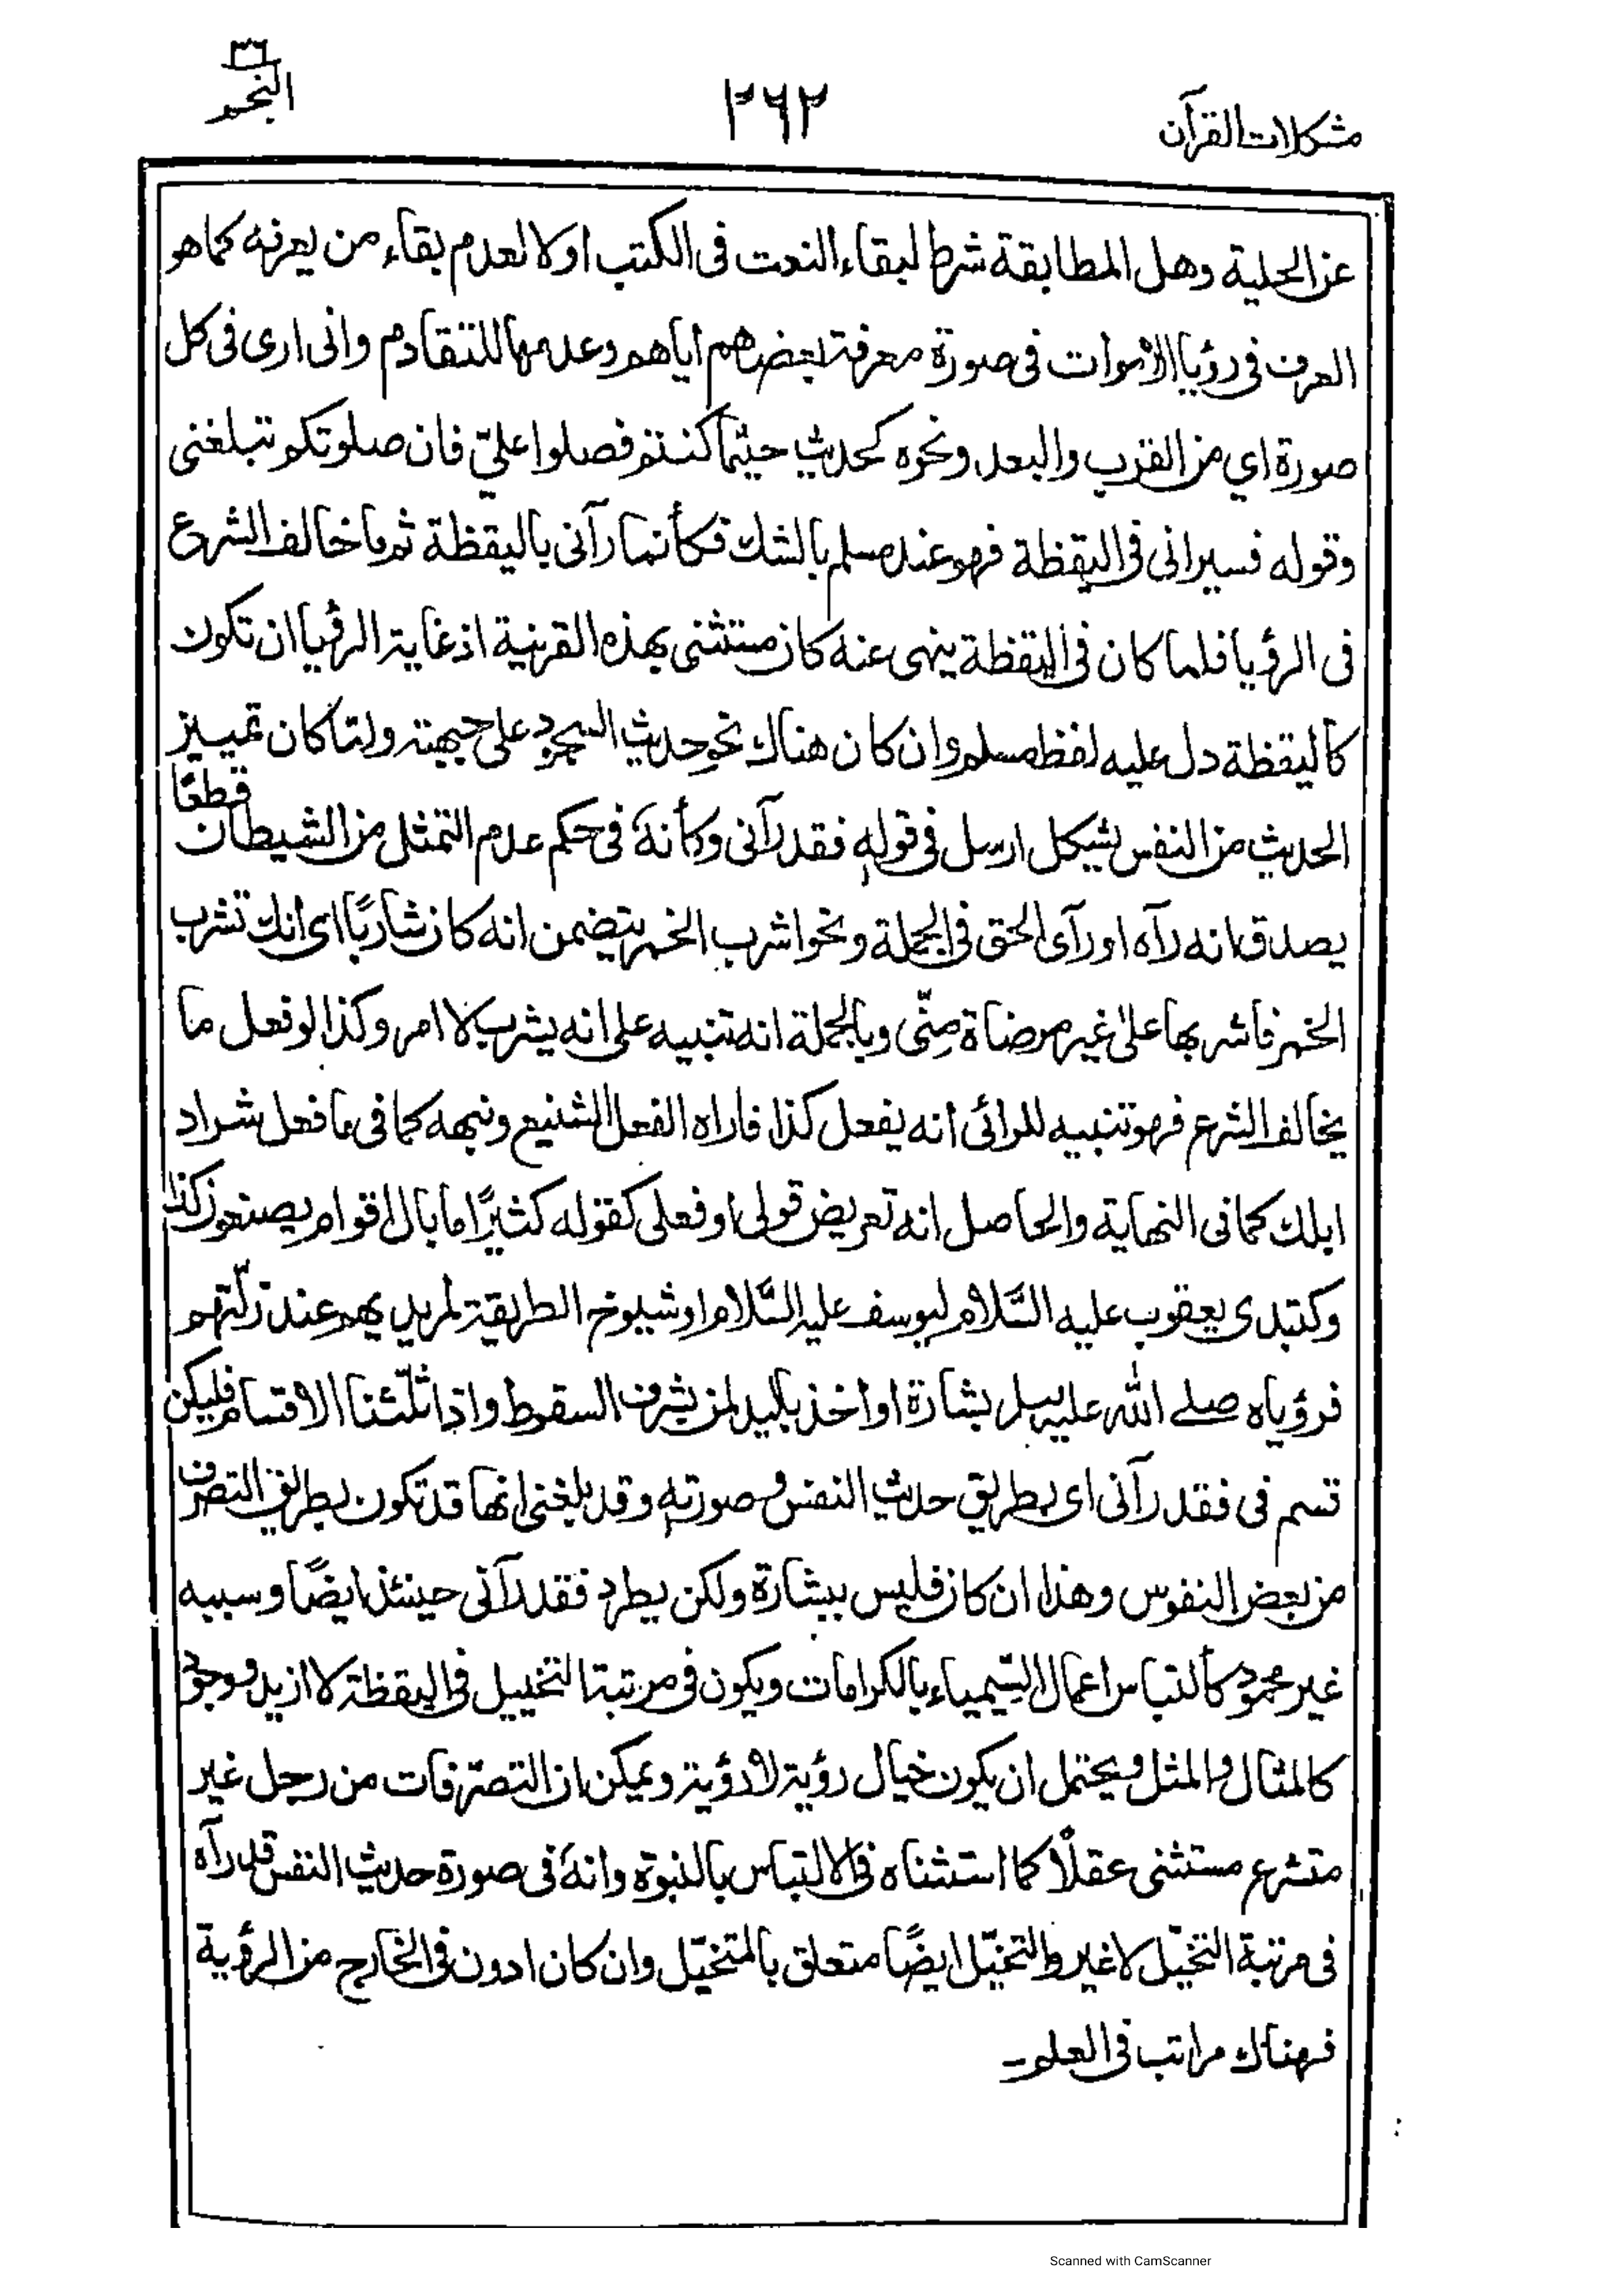 مشكلات القرآن
٢٦٢
النجم
عن الحلية وهل المطابقة شرط لبقاء النعت فى الكتب او لا لعدم بقاء من يعرفه كما هو
العرف فى رؤيا الاموات فى صورة معرفة بعضهم اياهم وعدمها للتقادم وانى ارى فى كل
صورة اي من القرب والبعد ونحوه كحديث حيثما كنتم فصلوا عليّ فان صلوتكم تبلغنى
وقوله فسيرانى فى اليقظة فهو عند مسلم بالشك فكأنما رآنى باليقظة ثم ما خالف الشرع
فى الرؤيا فلما كان فى اليقظة ينهى عنه كان مستثنى بهذه القرينة اذ غاية الرؤيا ان تكون
كاليقظة دل عليه لفظ مسلم وان كان هناك نحو حديث السجود على جبهته ولما كان تمييز
الحديث من النفس يشكل ارسل فى قولهٖ فقد رآنى وكأنهٗ فى حكم عدم التمثل من الشيطان قطعًا
يصدق انه رآه او رآى الحق فى الجملة ونحو اشرب الخمر يتضمن انه كان شاربًا اى انك تشرب
الخمر فاشربها على غير مرضاة مِنّى وبالجملة انه تنبيه على انه يشرب لا امر وكذا لو فعل ما
يخالف الشرع فهو تنبيه للرائى انه يفعل كذا فاراه الفعل الشنيع ونبهه كما فى ما فعل شراد
ابلك كما فى النهاية والحاصل انه تعريض قولى او فعلى كقوله كثيرًا ما بال اقوام يصنعون كذا
وكتبدى يعقوب عليه السَّلام ليوسف عليه السَّلام او شيوخ الطريقة لمريديهم عند زلّتهم
فرؤياه صلے الله عليه وسلم بشارة او اخذ باليد لمن يشرف السقوط واذا ثلّثنا الاقسام فليكن
قسم فى فقد رآنى اى بطريق حديث النفس وصورتهٖ وقد بلغنى انها قد تكون بطريق التصرف
من بعض النفوس وهذا ان كان فليس ببشارة ولكن يطرد فقد رآنى حينئذ ايضًا وسببه
غير محمود كالتباس اعمال السِّيمياء بالكرامات ويكون فى مرتبة التخييل فى اليقظة لا ازيد ووجود
كالمثال والمثل ويحتمل ان يكون خيال رؤية لا رؤية ويمكن ان التصرّفات من رجل غير
متشرع مستثنى عقلًا كما استثناه فى الالتباس بالنبوة وانهٗ فى صورة حديث النفس قد رآه
فى مرتبة التخيّل لا غير والتخيّل ايضًا متعلق بالمتخيّل وان كان ادون فى الخارج من الرؤية
فهناك مراتب فى العلم۔
Scanned with CamScanner